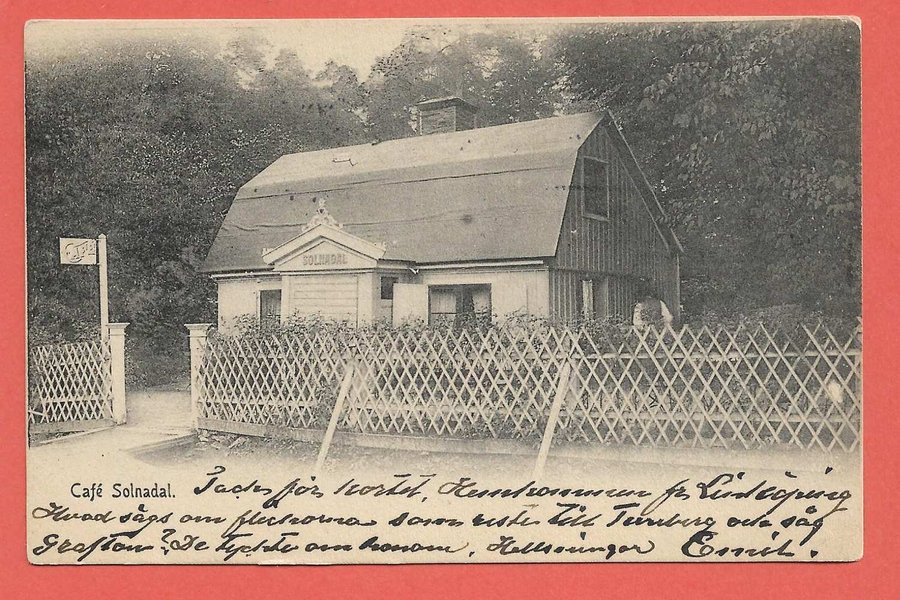 Café
SOLNADAL
Café Solnadal.
Tack för kortet, Hemkommen fr Linköping
Hvad sägs om flickorna som reste till Tureberg och såg
Grafton? De tyckte om honom, Helsningar Emil.